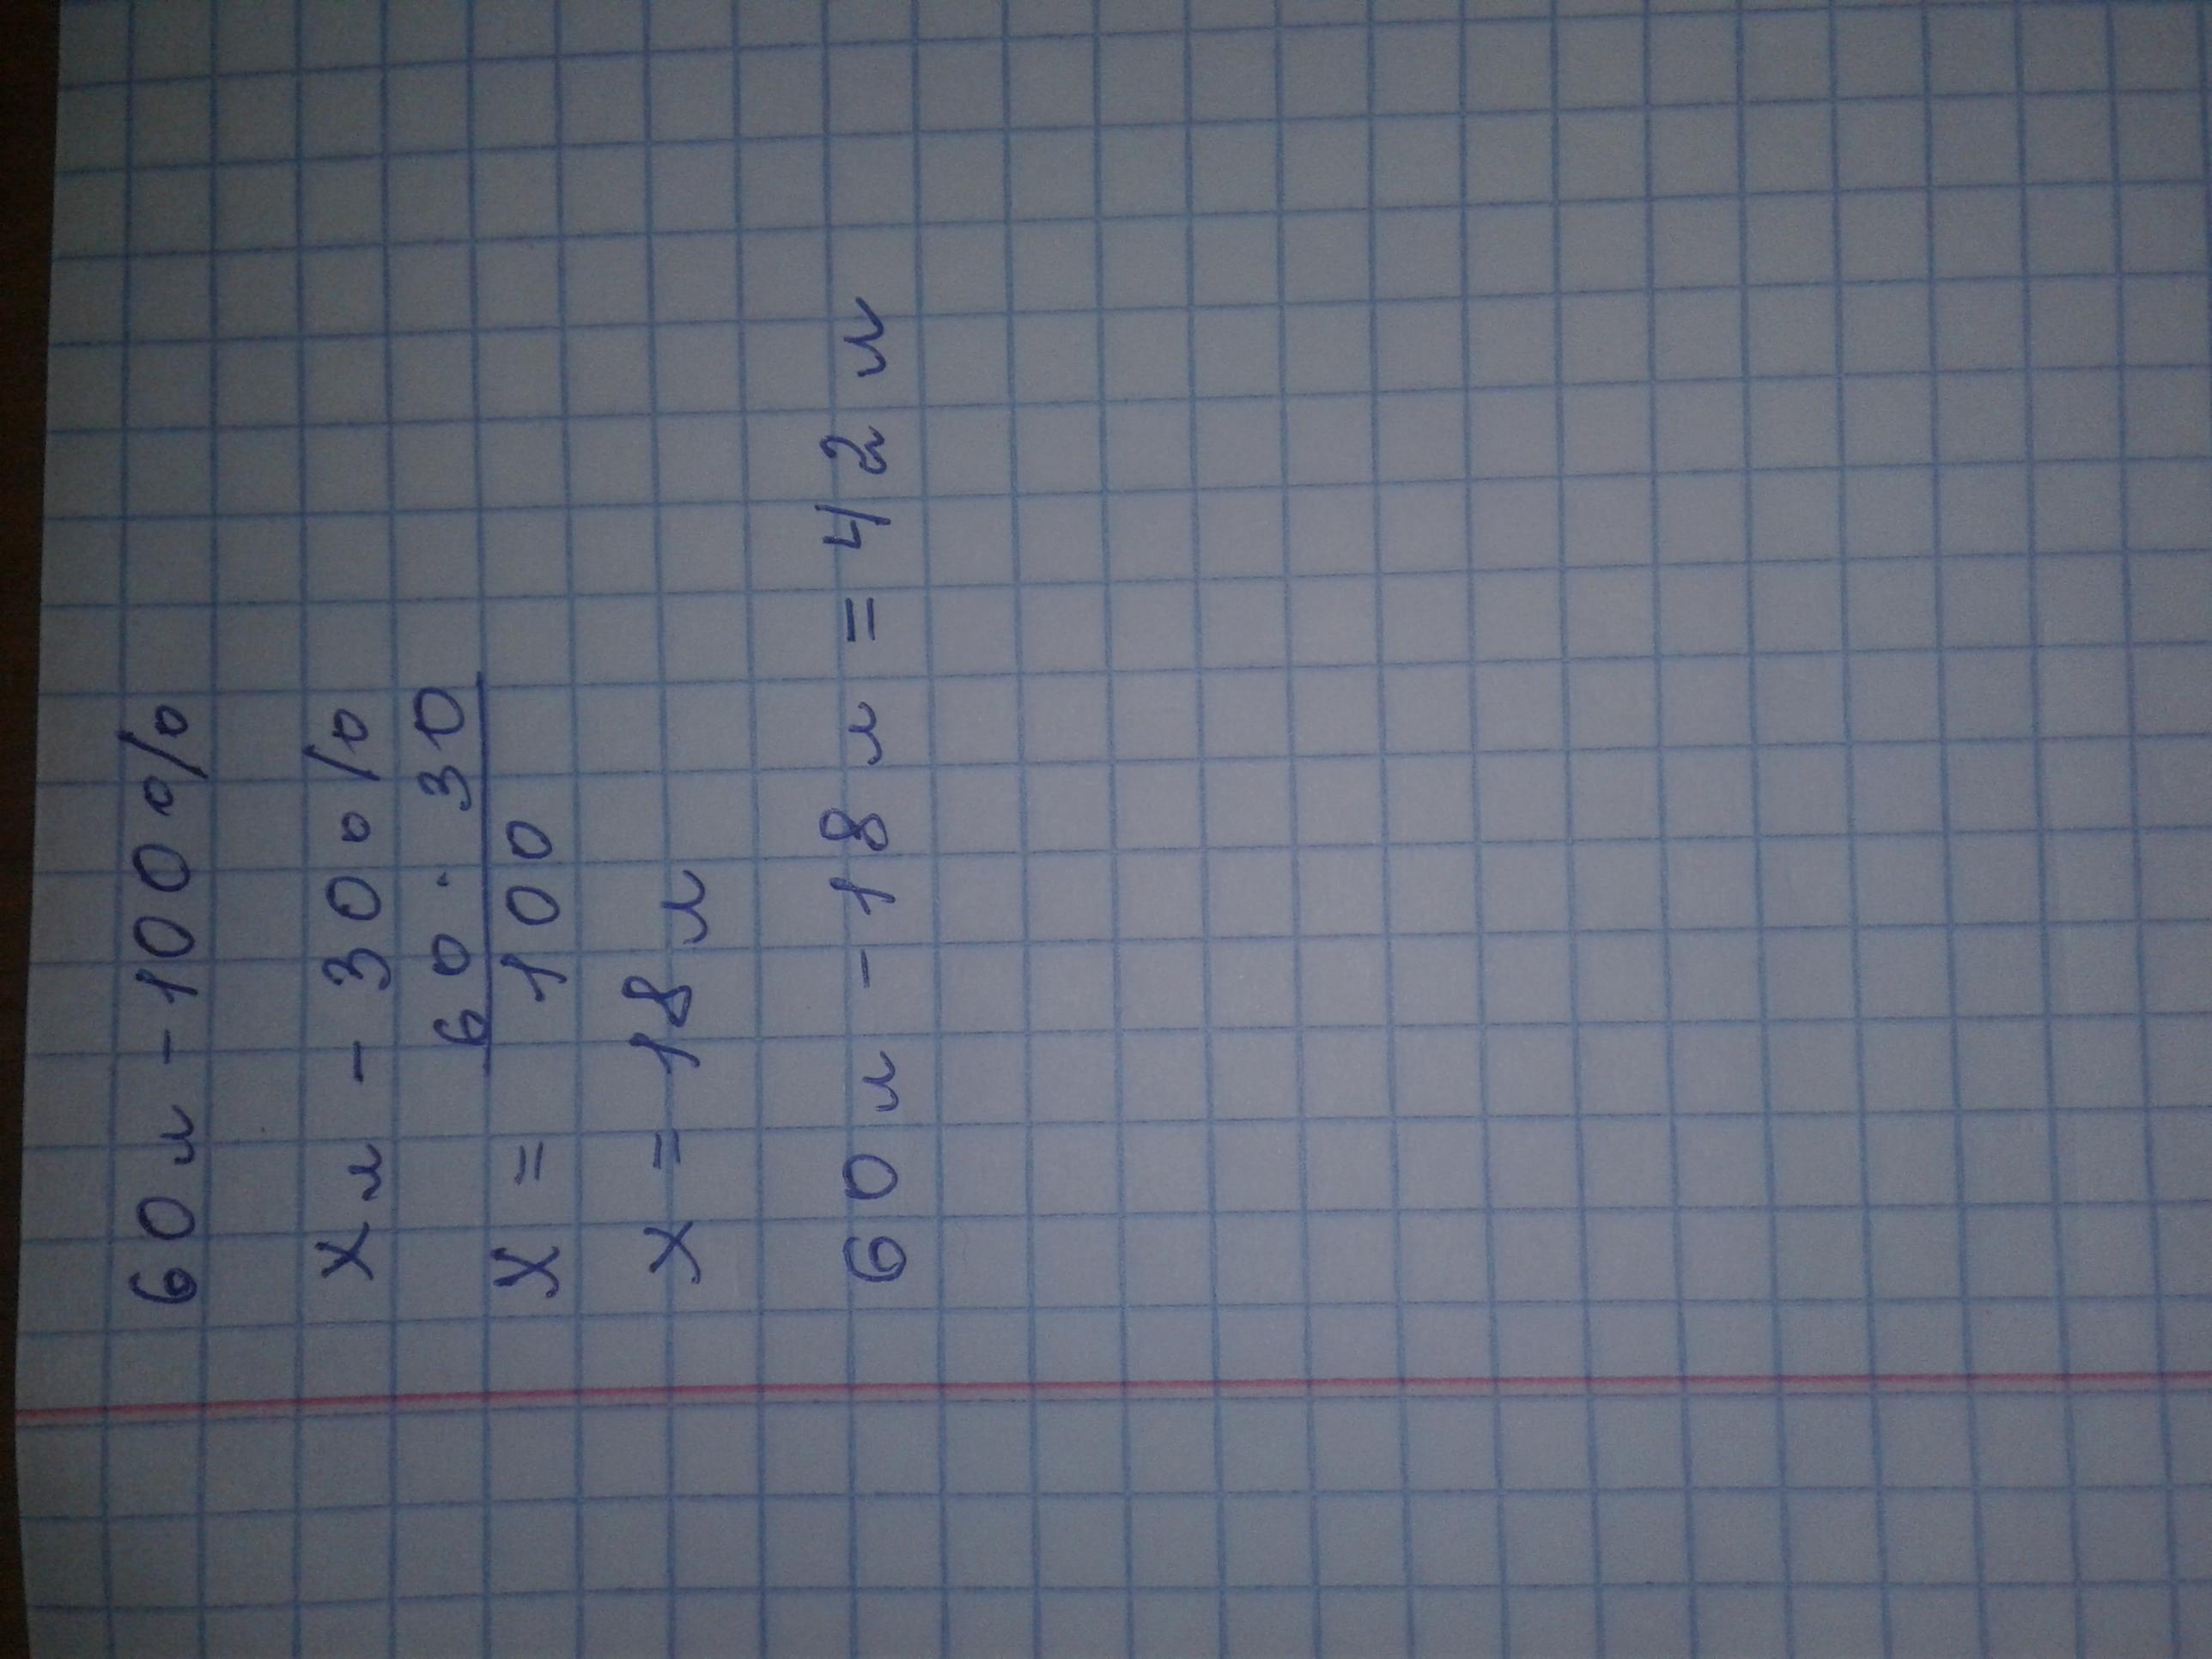 60 л - 100 %
х л - 30 %
х = 60 · 30 / 100
х = 18 л
60 л - 18 л = 42 л